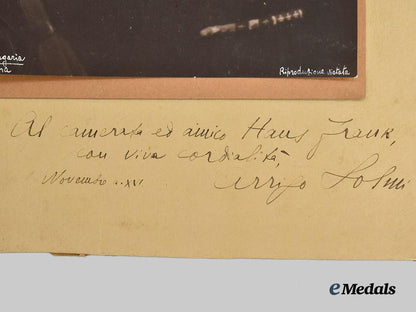 Riproduzione vietata
Al camerata ed amico Hans Frank,
con viva cordialità,
Novembre XVI
Arrigo Solmi
eMedals